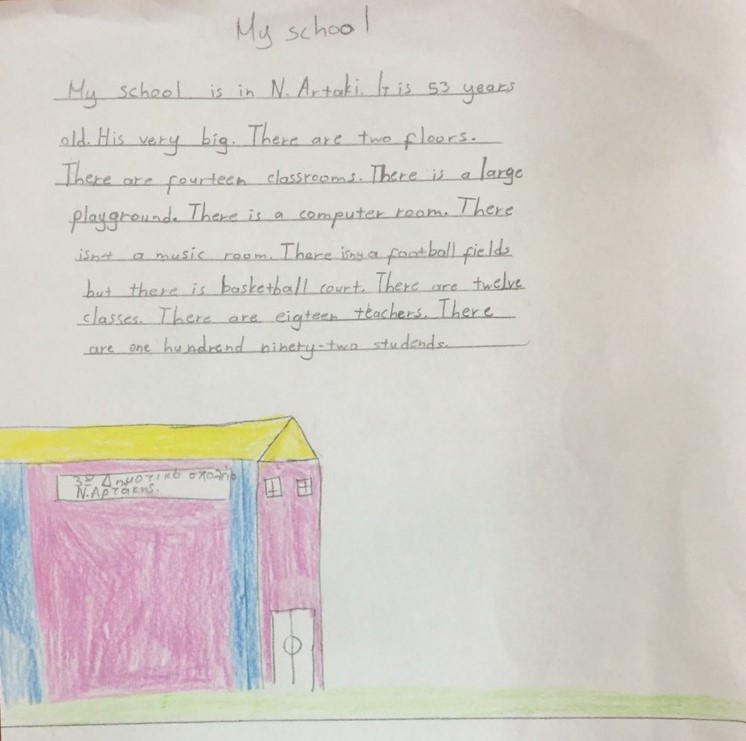 My school
My school is in N. Artaki. It is 53 years
old. His very big. There are two floors.
There are fourteen classrooms. There is a large
playground. There is a computer room. There
isn't a music room. There isn't a football fields
but there is basketball court. There are twelve
classes. There are eigteen teachers. There
are one hundrend ninety-two studends.
3ο Δημοτικό σχολείο
Ν. Αρτάκης.